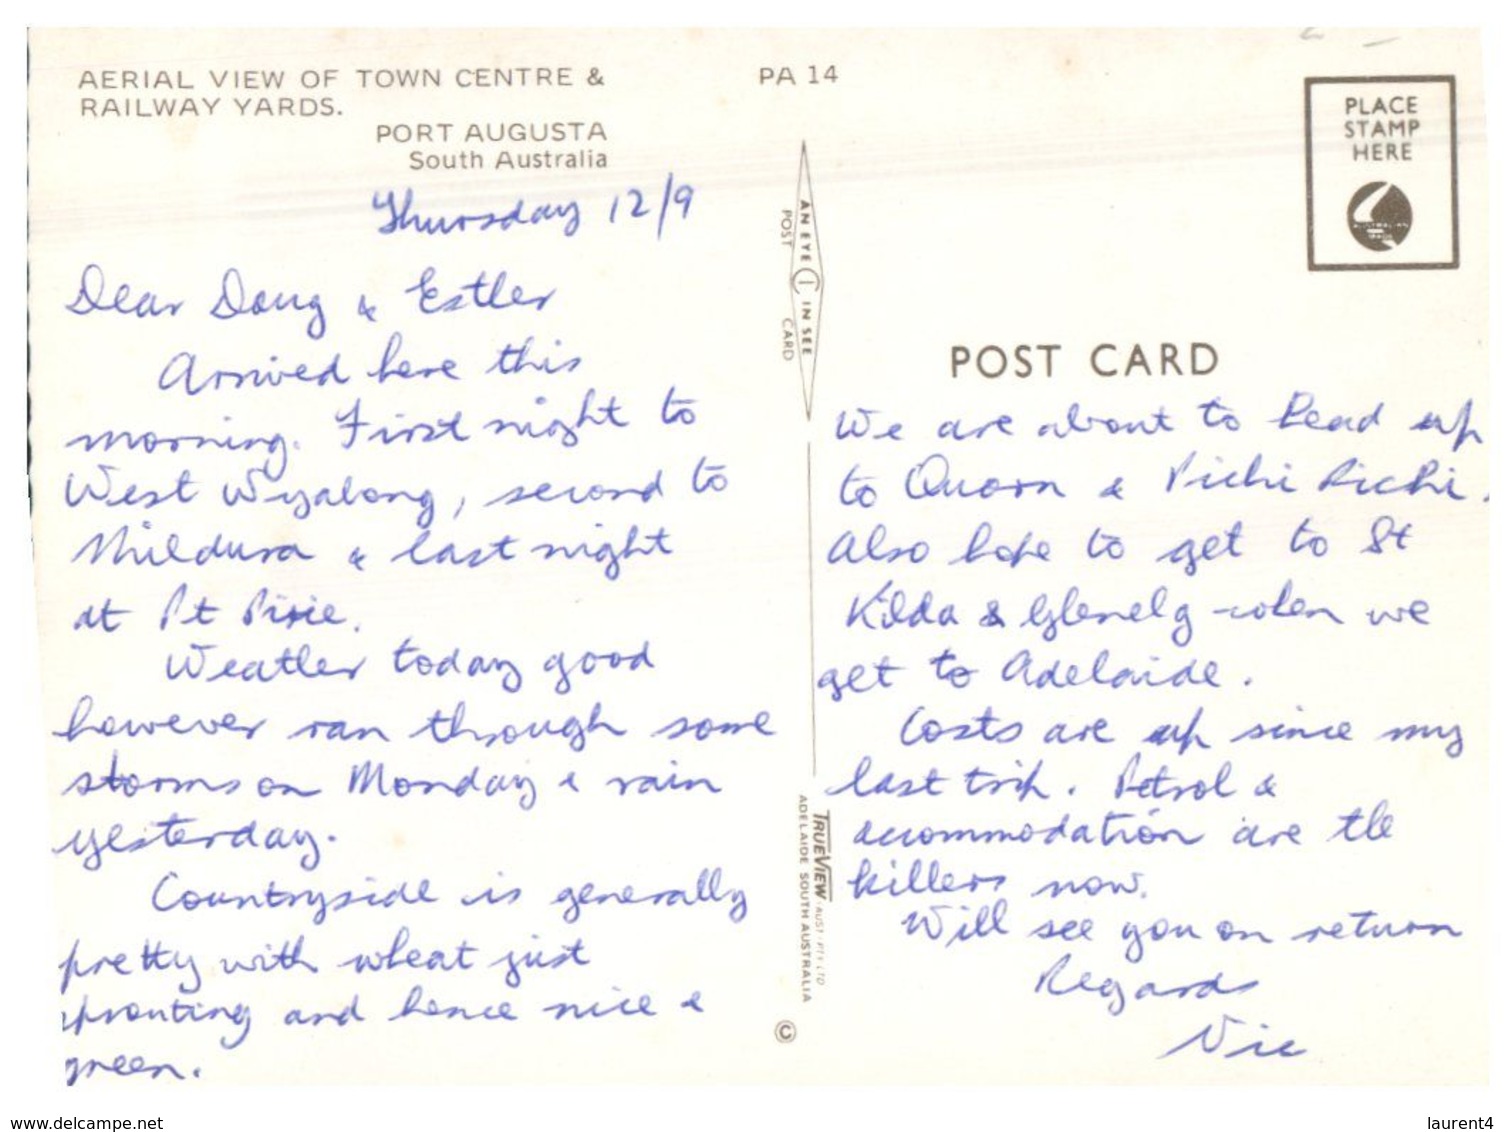 AERIAL VIEW OF TOWN CENTRE &
RAILWAY YARDS.
PORT AUGUSTA
South Australia
Thursday 12/9
Dear Doug & Esther
Arrived here this
morning. First night to
West Wyalong, second to
Mildura & last night
at Pt Pirie.
Weather today good
however ran through some
storms on Monday & rain
yesterday.
Countryside is generally
pretty with wheat just
sprouting and hence nice &
green.
PA 14
AN EYE IN SEE
POST CARD
TRUEVIEW AUST. PTY LTD
ADELAIDE SOUTH AUSTRALIA
©
PLACE
STAMP
HERE
POST CARD
We are about to head up
to Quorn & Pichi Richi.
Also hope to get to St
Kilda & Glenelg when we
get to Adelaide.
Costs are up since my
last trip. Petrol &
accommodation are the
killers now.
Will see you on return
Regards
Vic
www.delcampe.net
laurent4